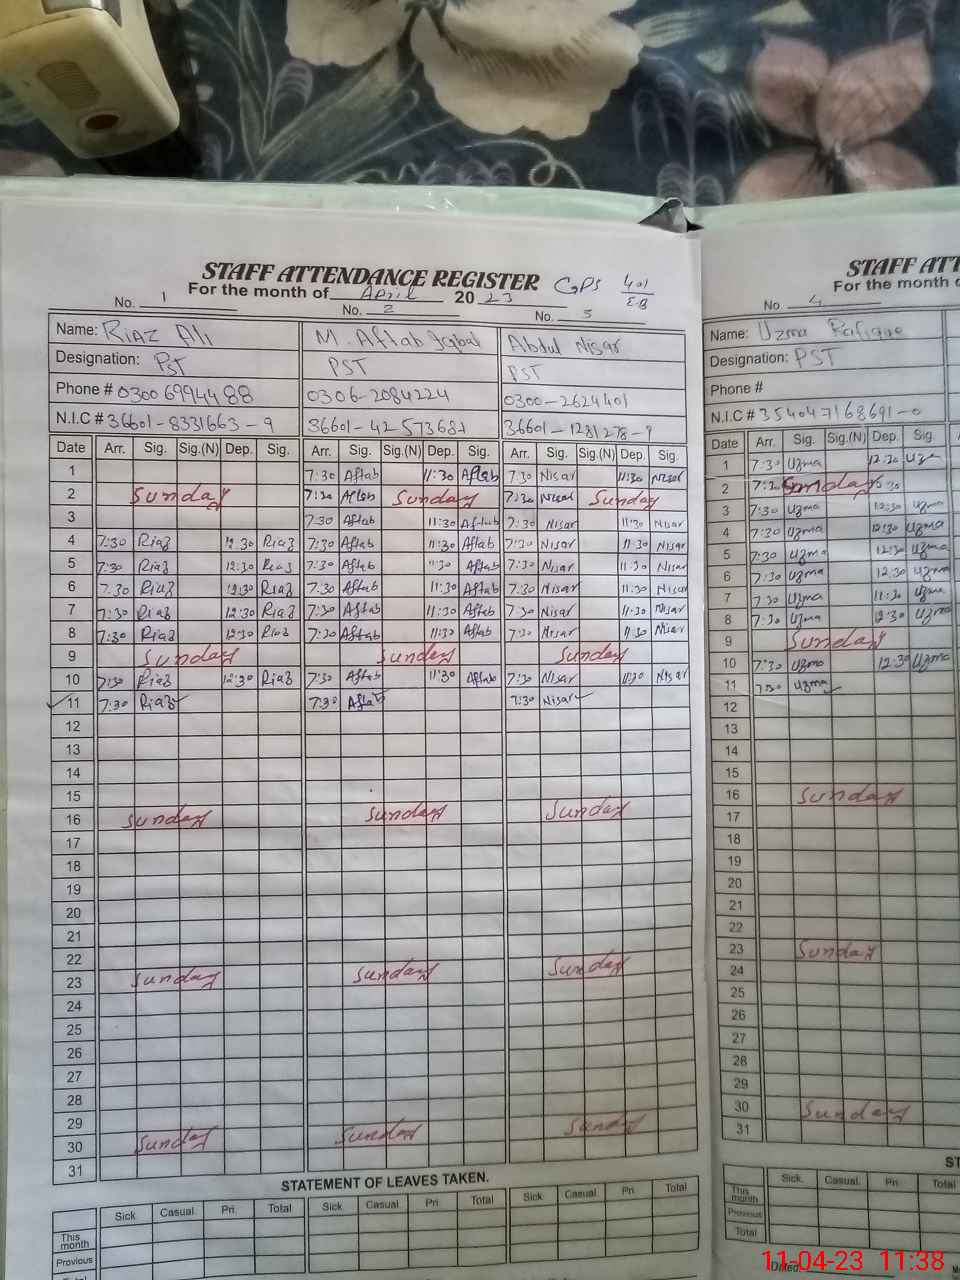 STAFF ATTENDANCE REGISTER GPS 401 E.B
For the month of April 2023
No. 1 No. 2 No. 3
Name: Riaz Ali M. Aftab Iqbal Abdul Nisar
Designation: PST PST PST
Phone # 0300 6994488 0306-2084224 0300-2624401
N.I.C # 36601-8331663-9 36601-42573687 36601-1281278-9
Date Arr. Sig. Sig.(N) Dep. Sig. Arr. Sig. Sig.(N) Dep. Sig. Arr. Sig. Sig.(N) Dep. Sig.
1 7:30 Aftab 11:30 Aftab 7:30 Nisar 11:30 Nisar
2 Sunday 7:30 Aftab Sunday 7:30 Nisar Sunday
3 7:30 Aftab 11:30 Aftab 7:30 Nisar 11:30 Nisar
4 7:30 Riaz 12:30 Riaz 7:30 Aftab 11:30 Aftab 7:30 Nisar 11:30 Nisar
5 7:30 Riaz 12:30 Riaz 7:30 Aftab 11:30 Aftab 7:30 Nisar 11:30 Nisar
6 7:30 Riaz 12:30 Riaz 7:30 Aftab 11:30 Aftab 7:30 Nisar 11:30 Nisar
7 7:30 Riaz 12:30 Riaz 7:30 Aftab 11:30 Aftab 7:30 Nisar 11:30 Nisar
8 7:30 Riaz 12:30 Riaz 7:30 Aftab 11:30 Aftab 7:30 Nisar 11:30 Nisar
9 Sunday Sunday Sunday
10 7:30 Riaz 12:30 Riaz 7:30 Aftab 11:30 Aftab 7:30 Nisar 11:30 Nisar
11 7:30 Riaz 7:30 Aftab 7:30 Nisar
12
13
14
15
16 Sunday Sunday Sunday
17
18
19
20
21
22
23 Sunday Sunday Sunday
24
25
26
27
28
29
30 Sunday Sunday Sunday
31
STATEMENT OF LEAVES TAKEN.
Sick Casual. Pri. Total Sick Casual. Pri. Total Sick Casual. Pri. Total
This month
Provious
Total
STAFF ATT
For the month o
No. 4
Name: Uzma Rafique
Designation: PST
Phone #
N.I.C # 3540471 68691-0
Date Arr. Sig. Sig.(N) Dep. Sig.
1 7:30 Uzma 12:30
2 Sunday
3 7:30 Uzma 12:30 Uzma
4 7:30 Uzma 12:30 Uzma
5 7:30 Uzma 12:30 Uzma
6 7:30 Uzma 12:30 Uzma
7 7:30 Uzma 11:30 Uzma
8 7:30 Uzma 12:30 Uzma
9 Sunday
10 7:30 Uzma 12:30 Uzma
11 7:30 Uzma
12
13
14
15
16 Sunday
17
18
19
20
21
22
23 Sunday
24
25
26
27
28
29
30 Sunday
31
ST
Sick. Casual. Pri. Total
This month
Provious
Total
Dated:
11-04-23 11:38